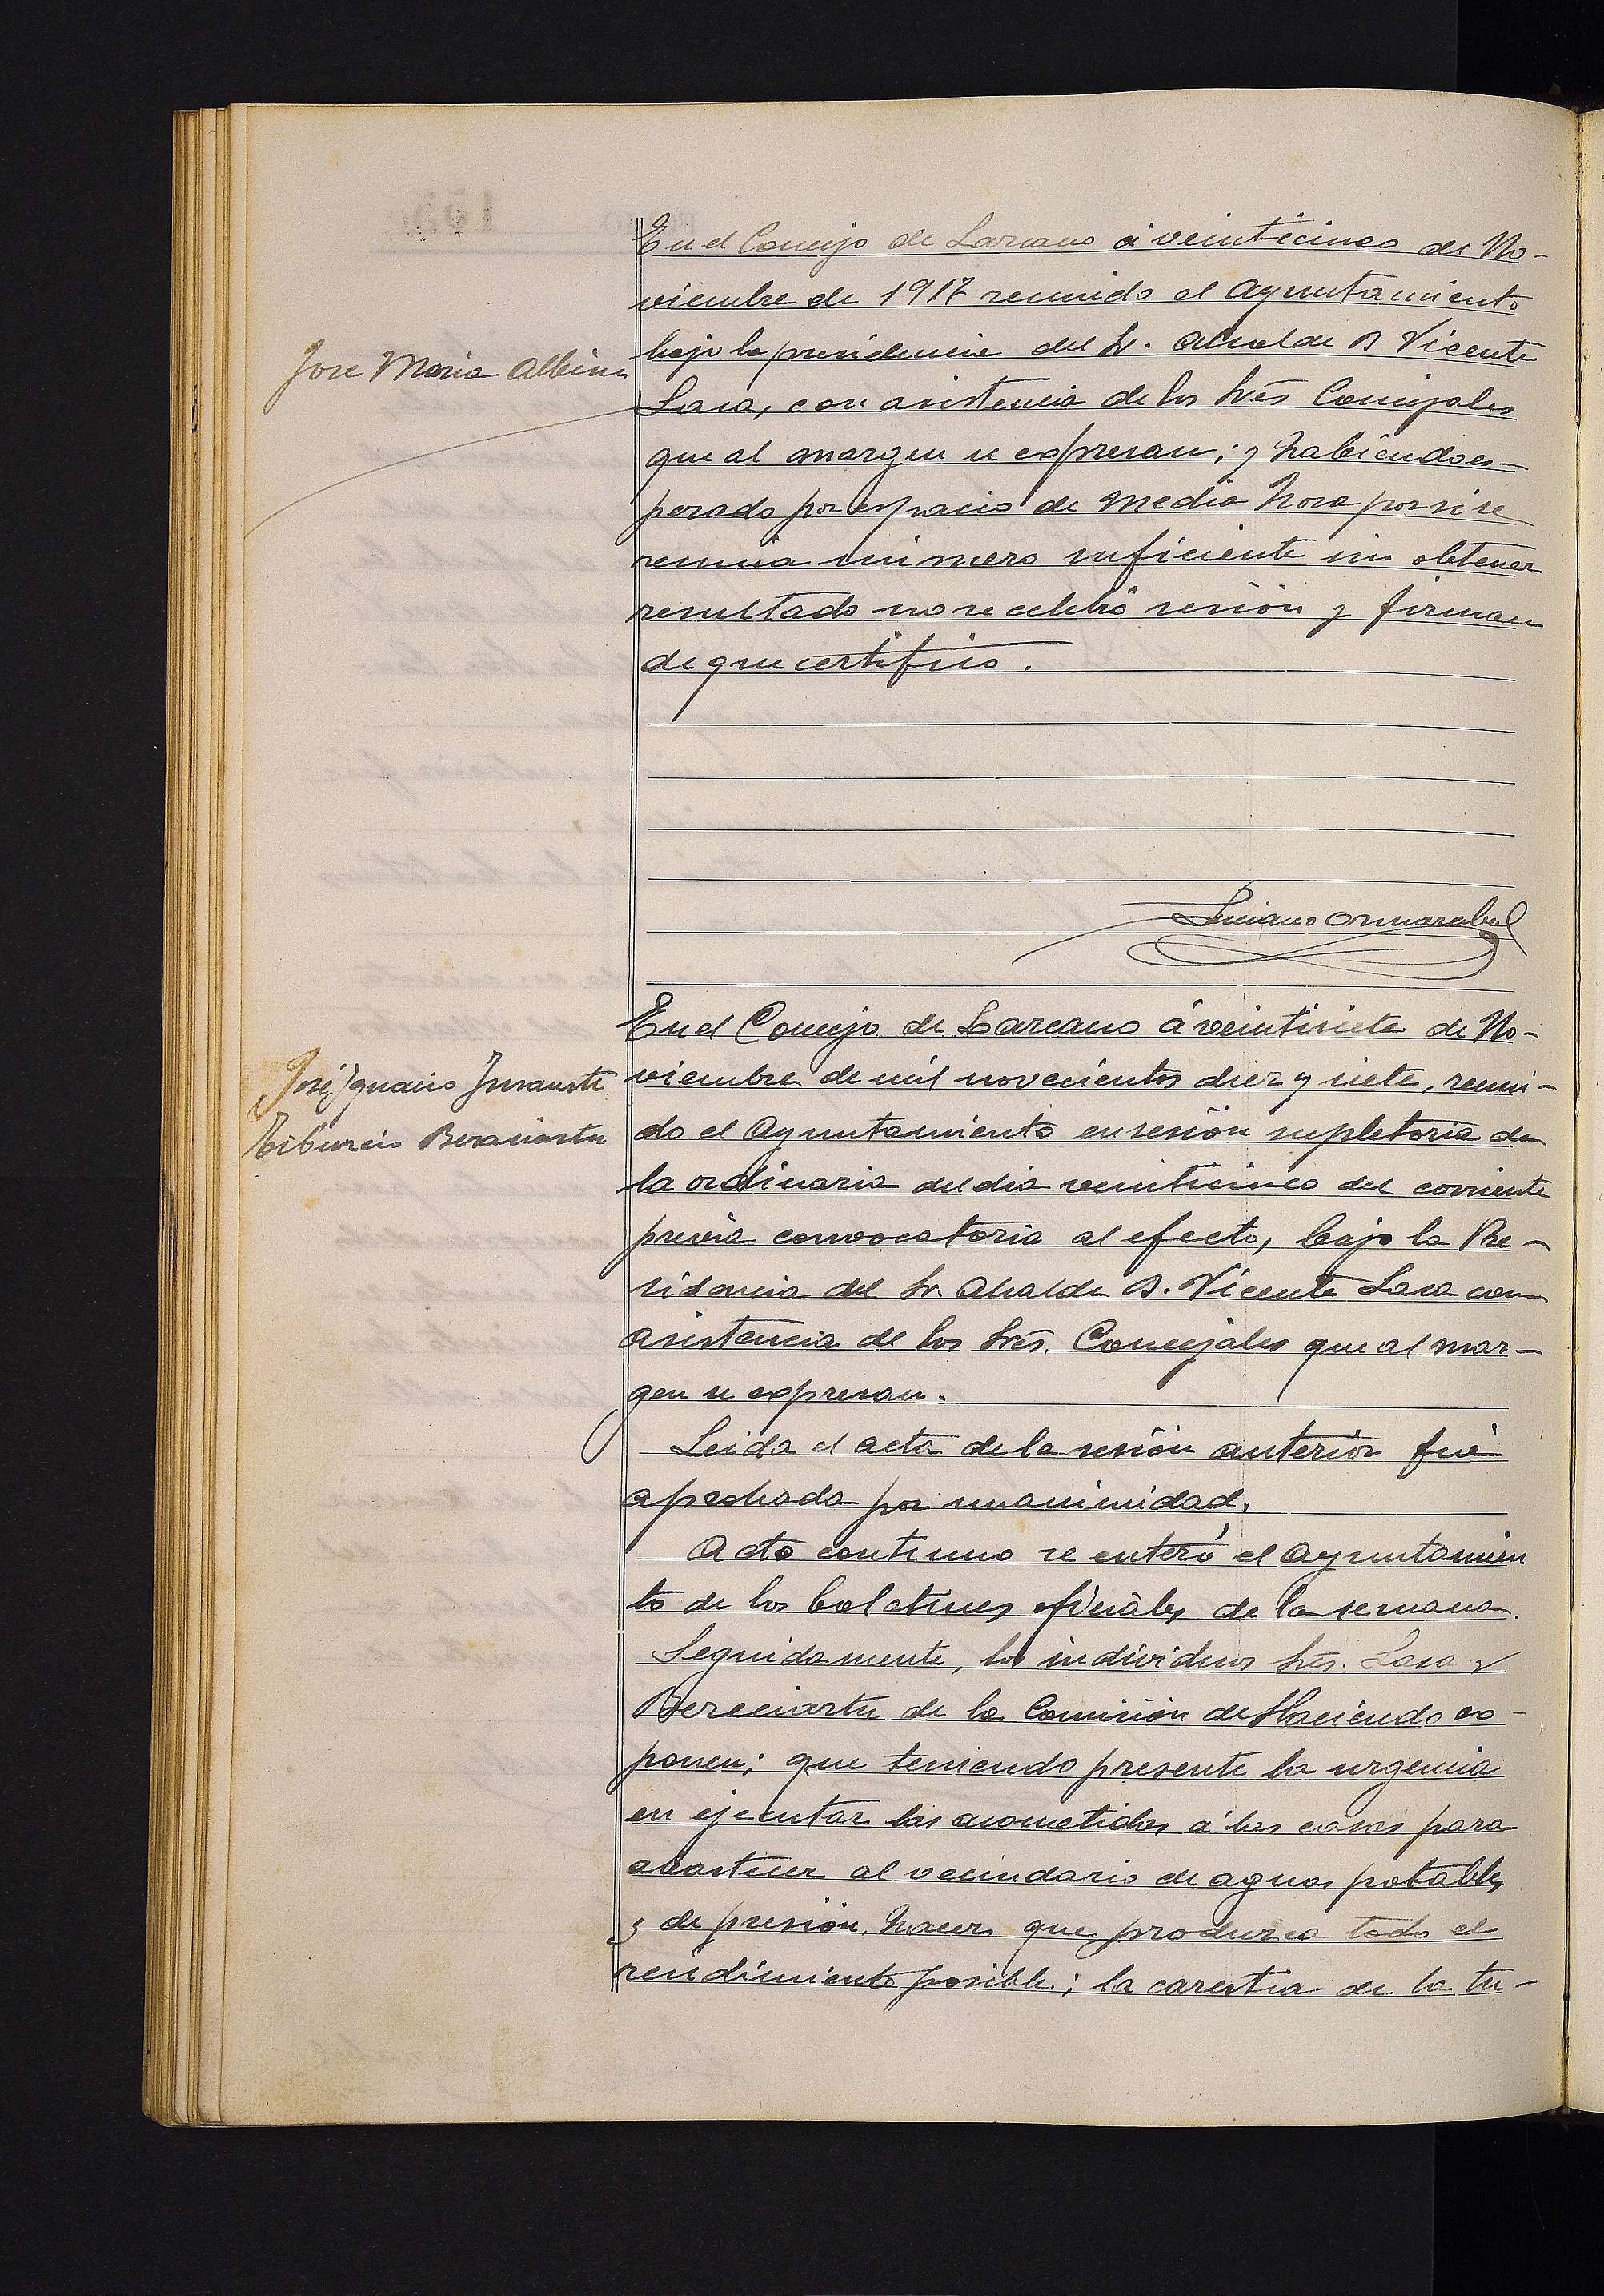 En el Concejo de Lazcano á veinticinco de No-
viembre de 1917 reunido el Ayuntamiento
bajo la presidencia del Sr. Alcalde D Vicente
Jose Maria Albisu
Lasa, con asistencia de los Srés Concejales
que al margen se expresan; y habiendo es-
perado por espacio de media hora por si se
reunia número suficiente sin obtener
resultado no se celebró sesión y firman
de que certifico.
Luciano
En el Concejo de Lazcano á veintisiete de No-
José Ignacio Insausti
viembre de mil novecientos diez y siete, reuni-
Tiburcio Bereciartu
do el Ayuntamiento en sesión supletoria de
la ordinaria del dia veinticinco del corriente
previa convocatoria al efecto, bajo la Pre-
sidencia del Sr. Alcalde D. Vicente Lasa con
asistencia de los Srés. Concejales que al mar-
gen se expresan.
Leida el acta de la sesión anterior fué
aprobada por unanimidad.
Acto continuo se enteró el Ayuntamien
to de los boletines oficiales de la semana.
Seguidamente, los individuos Srés. Lasa y
Bereciartu de la Comisión de Hacienda ex-
ponen; que teniendo presente la urgencia
en ejecutar las acometidas á las casas para
abastecer al vecindario de aguas potables
y de presión, hacer que produzca todo el
rendimiento posible; la carestia de la tu-